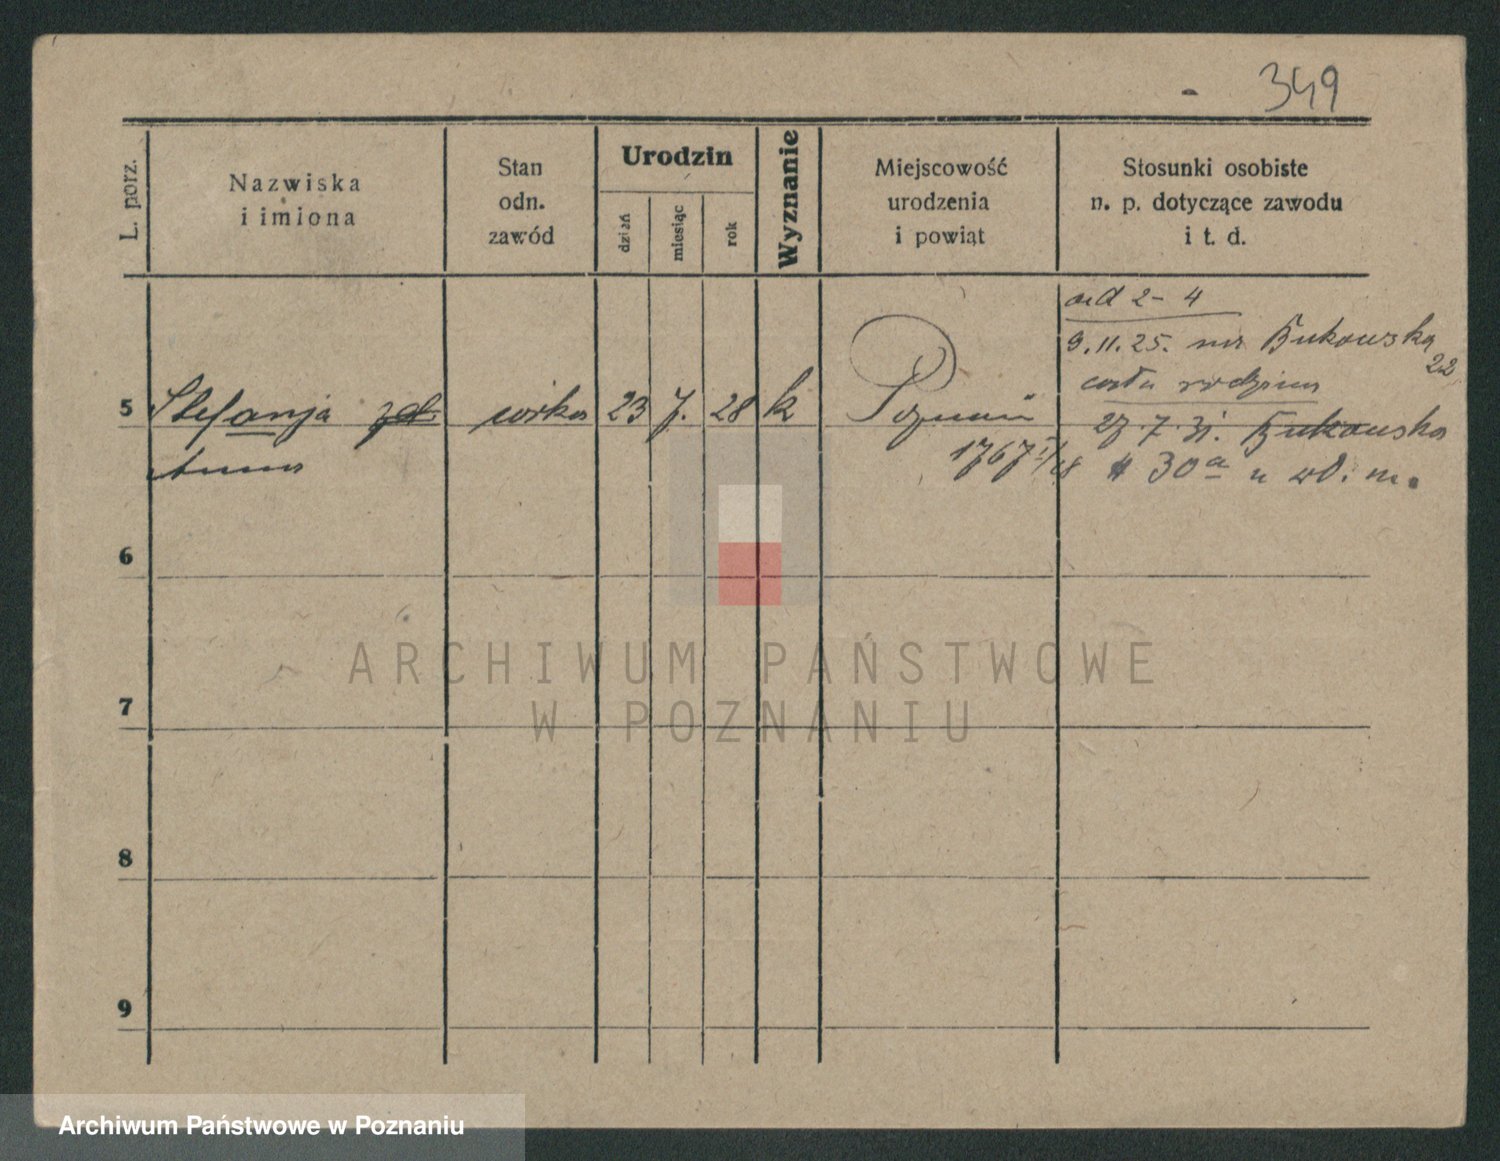 349
L. porz.
Nazwiska
i imiona
Stan
odn.
zawód
Urodzin
dzień
miesiąc
rok
Wyznanie
Miejscowość
urodzenia
i powiąt
Stosunki osobiste
n. p. dotyczące zawodu
i t. d.
od 2 - 4
9.11.25. na Bukowska
22
cała rodzina
5 Stefanja córka 23 7. 28 k Poznań 27.7.31. Bukowska
Anna
1767 30a u wł. m.
6
7
8
9
ARCHIWUM PAŃSTWOWE
W POZNANIU
Archiwum Państwowe w Poznaniu